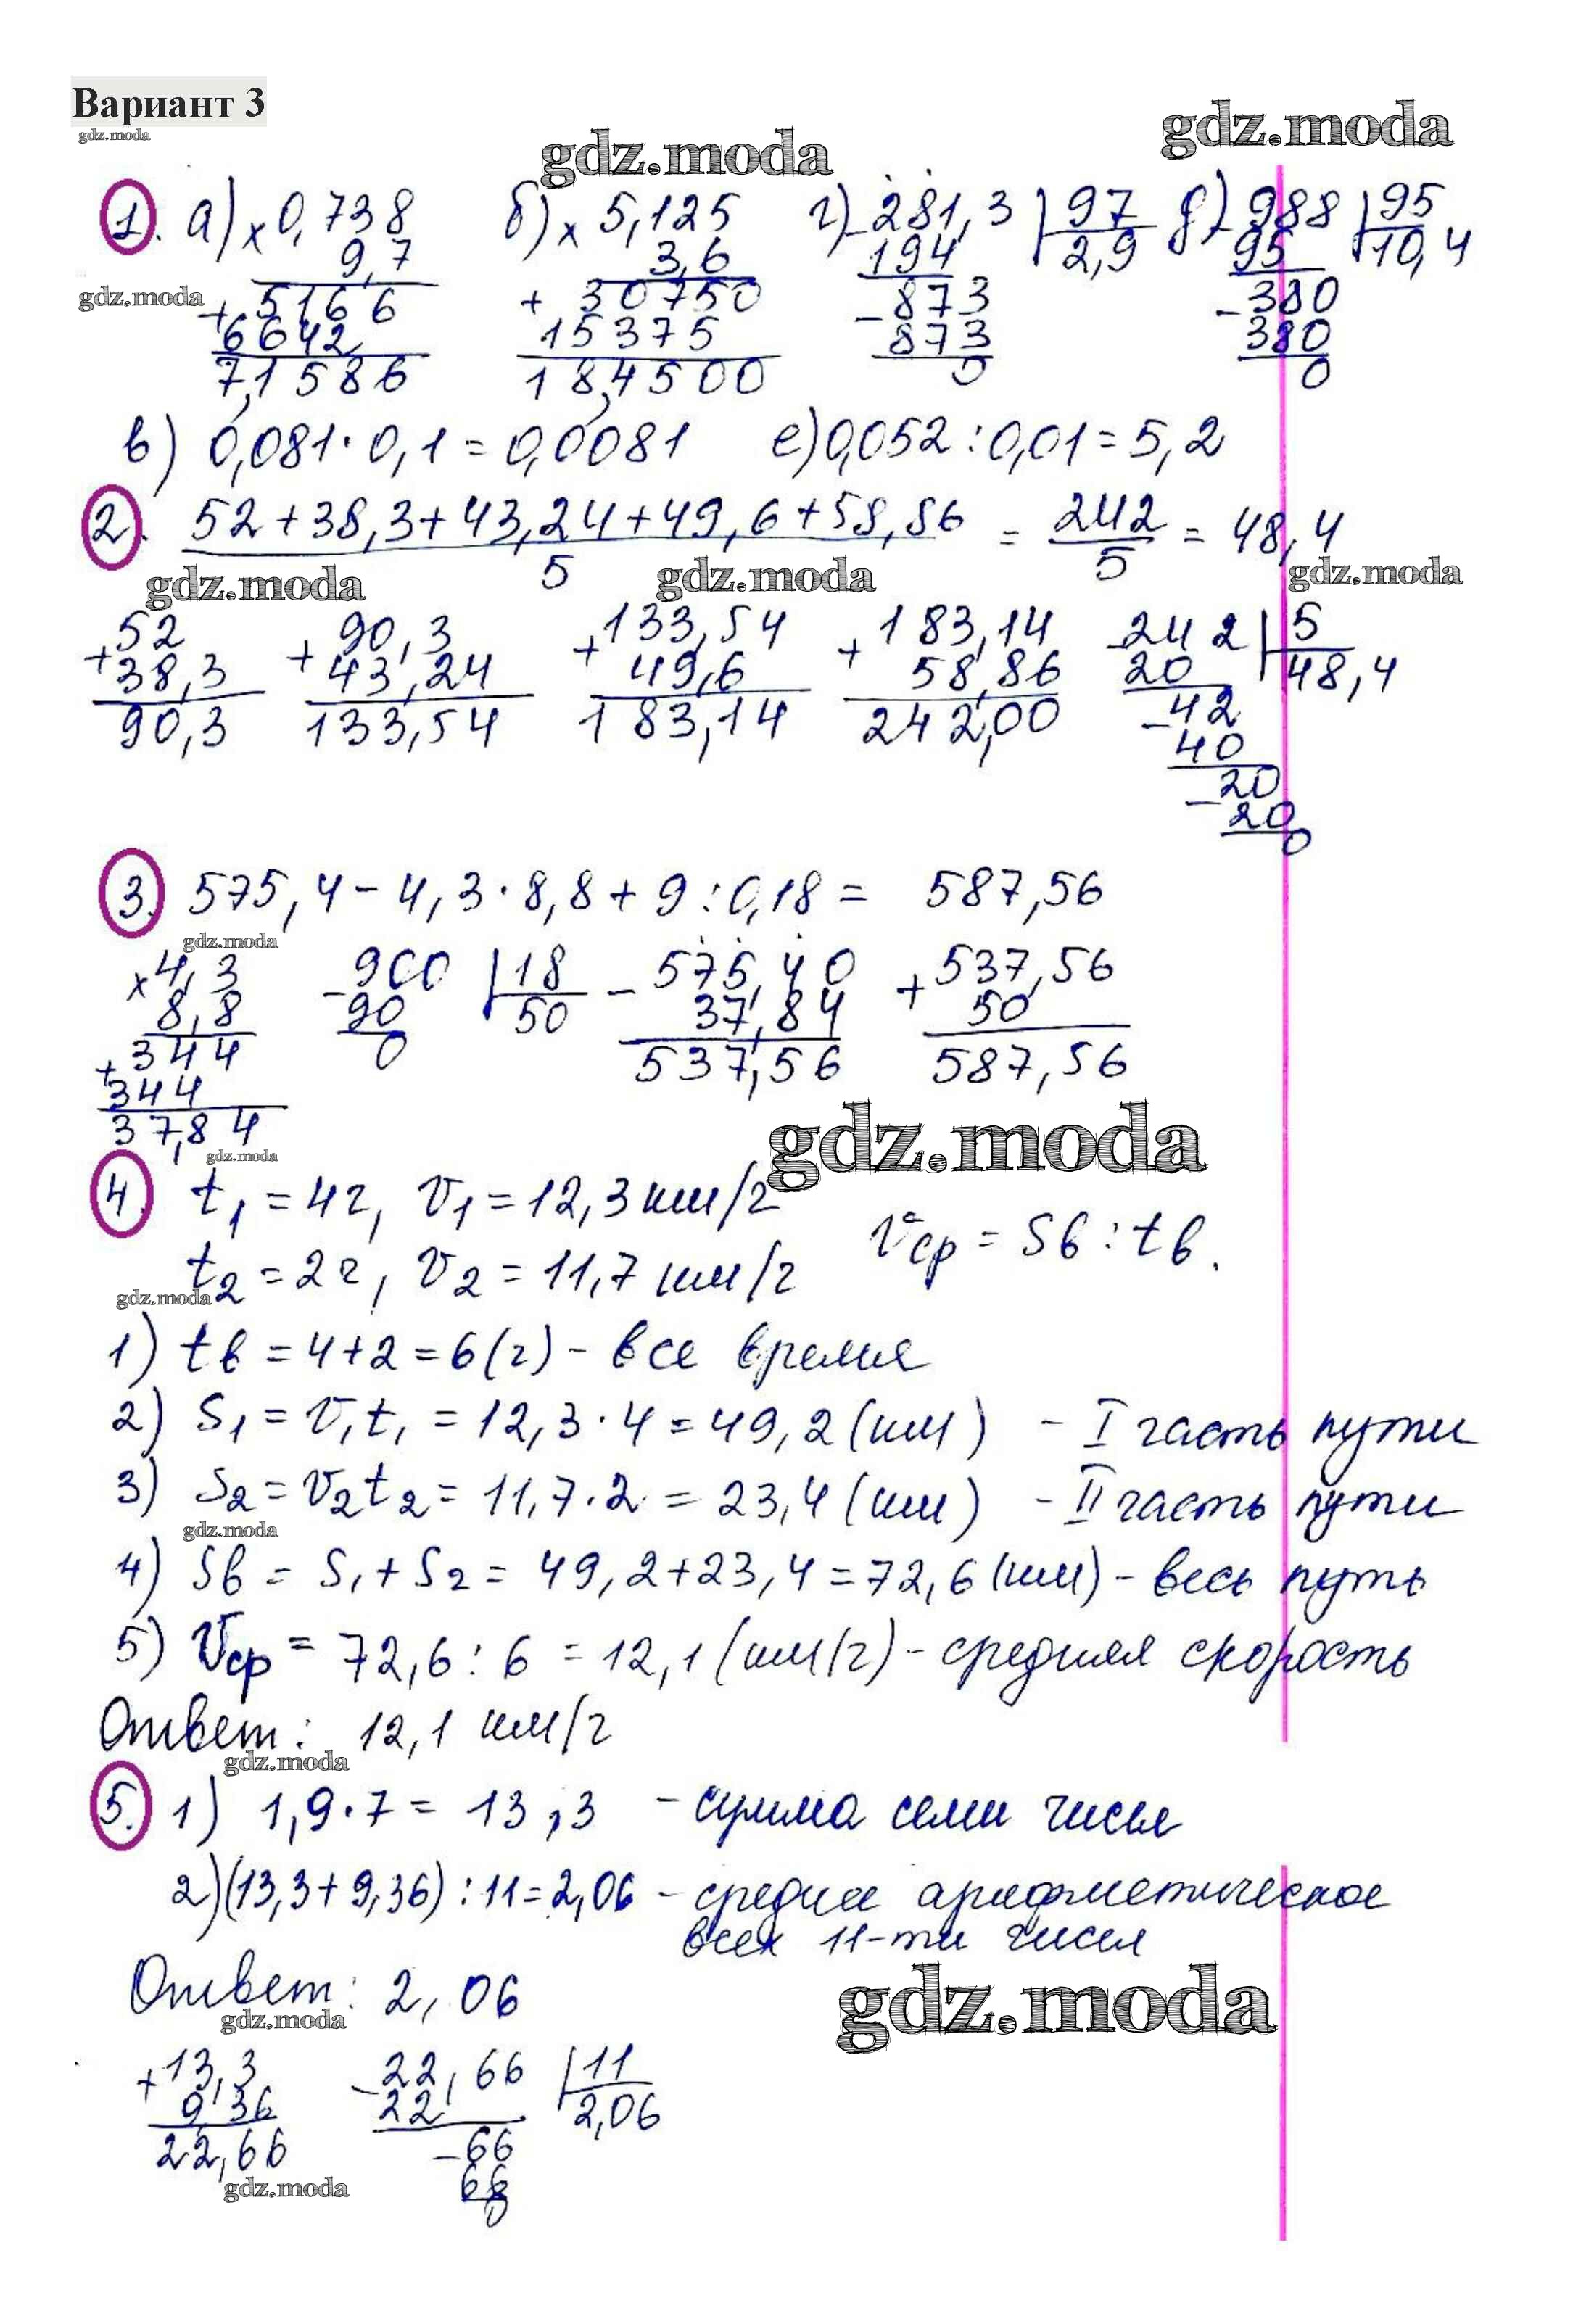 Вариант 3
gdz.moda
gdz.moda
gdz.moda
1. а) × 0,738 б) × 5,125 г) - 281,3 | 97 д) - 988 | 95
9,7 3,6 194 2,9 95 10,4
gdz.moda
+ 5166 + 30750 - 873 - 380
6642 15375 873 380
7,1586 18,4500 0 0
в) 0,081 · 0,1 = 0,0081 е) 0,052 : 0,01 = 5,2
2. 52 + 38,3 + 43,24 + 49,6 + 58,86 = 242 = 48,4
5 5
gdz.moda gdz.moda gdz.moda
+ 52 + 90,3 + 133,54 + 183,14 - 242 | 5
38,3 43,24 49,6 58,86 20 48,4
90,3 133,54 183,14 242,00 - 42
40
- 20
20
0
3. 575,4 - 4,3 · 8,8 + 9 : 0,18 = 587,56
gdz.moda
× 4,3 - 900 | 18 - 575,40 + 537,56
8,8 90 50 37,84 50
+ 344 0 537,56 587,56
344
37,84
gdz.moda
gdz.moda
4. t₁ = 4ч, v₁ = 12,3 км/ч
vср = Sв : tв.
t₂ = 2ч, v₂ = 11,7 км/ч
gdz.moda
1) tв = 4+2 = 6 (ч) - все время
2) S₁ = v₁t₁ = 12,3 · 4 = 49,2 (км) - I часть пути
3) S₂ = v₂t₂ = 11,7 · 2 = 23,4 (км) - II часть пути
gdz.moda
4) Sв = S₁ + S₂ = 49,2 + 23,4 = 72,6 (км) - весь путь
5) vср = 72,6 : 6 = 12,1 (км/ч) - средняя скорость
Ответ: 12,1 км/ч
gdz.moda
5. 1) 1,9 · 7 = 13,3 - сумма семи чисел
2) (13,3 + 9,36) : 11 = 2,06 - среднее арифметическое
всех 11-ти чисел
Ответ: 2,06
gdz.moda
gdz.moda
+ 13,3 - 22,66 | 11
9,36 22 2,06
22,66 - 66
66
0
gdz.moda